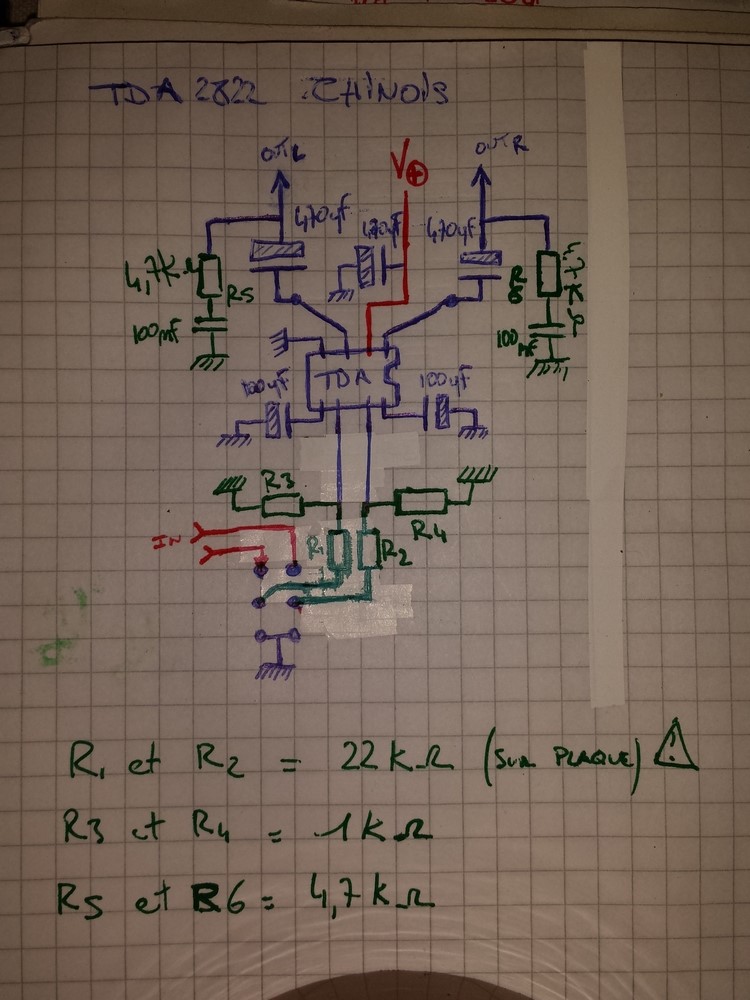 TDA 2822 CHINOIS
OUT L
V+
OUT R
470uF
470uF
470uF
4,7KΩ
R5
R6
100nF
100nF
TDA
100uF
100uF
R3
R4
IN
R1
R2
R1 et R2 = 22KΩ (SUR PLAQUE) !
R3 et R4 = 1KΩ
R5 et R6 = 4,7KΩ